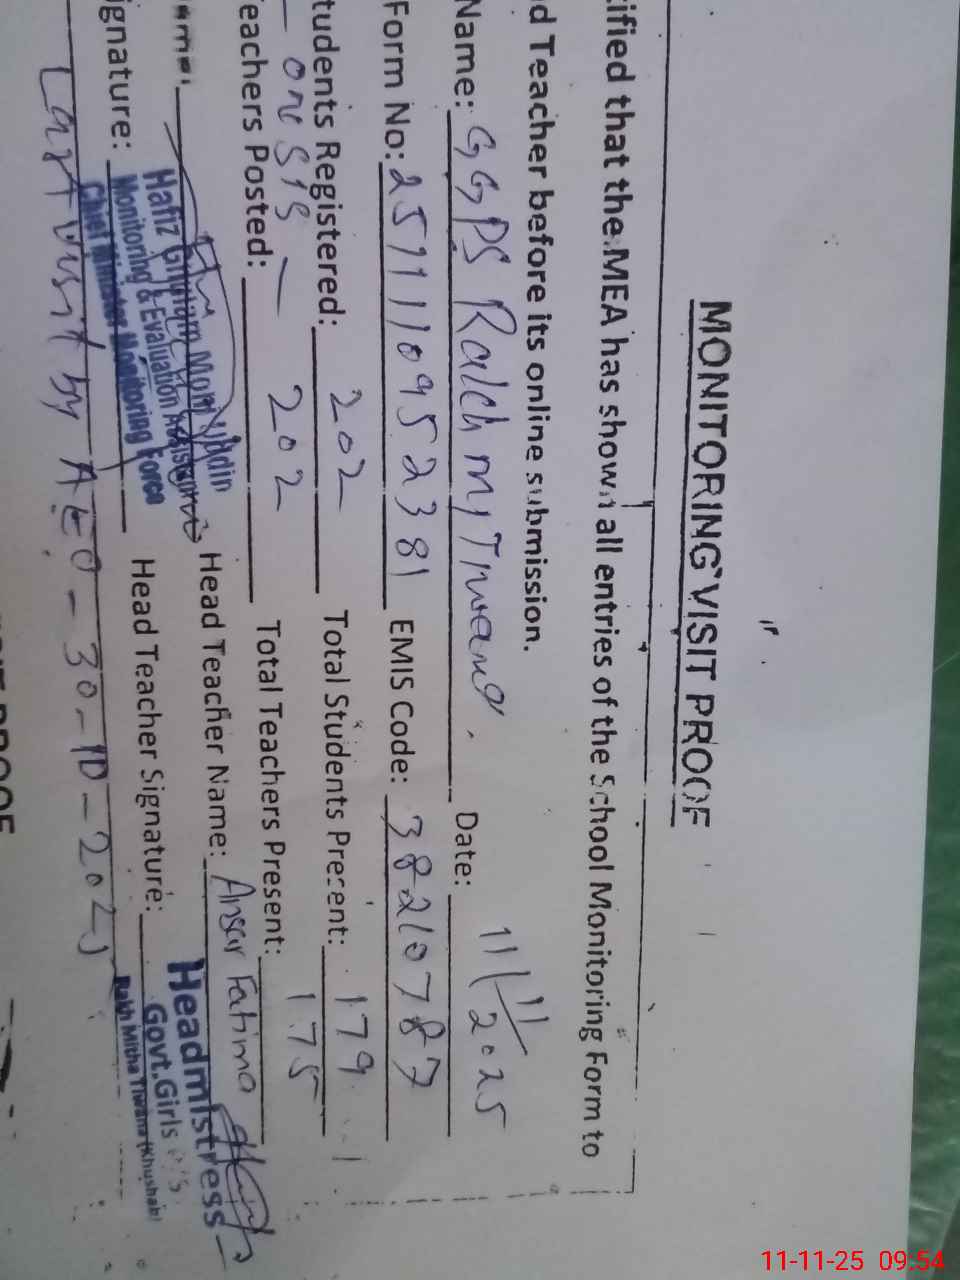 MONITORING VISIT PROOF
ified that the MEA has shown all entries of the School Monitoring Form to
d Teacher before its online submission.
Name: GGPS Rakh mj Tiwana. Date: 11/11/2025
Form No: 2511110952381 EMIS Code: 38210787
tudents Registered: 202 Total Students Present: 179
— on SIS — 202 175
eachers Posted: Total Teachers Present:
ame: Head Teacher Name: Ansar Fatima
Hafiz Ghulam Mohi Uddin
Monitoring & Evaluation Assistant
Chief Minister Monitoring Force
ignature: Head Teacher Signature:
Headmistress
Govt. Girls P/S
Rakh Mitha Tiwana (Khushab)
Last visit by AEO - 30-10-2025
11-11-25 09:54